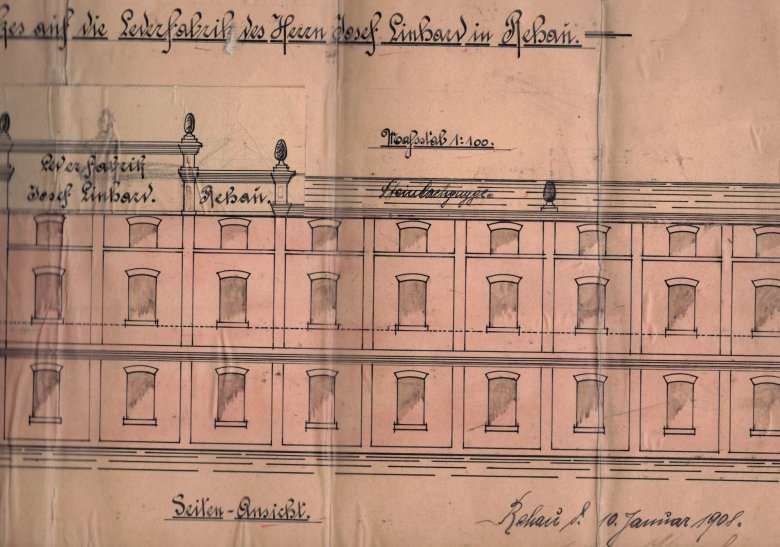 auf die Lederfabrik des Herrn Josef Linhard in Rehau.
Maßstab 1:100.
Lederfabrik
Josef Linhard. Rehau.
Seiten-Ansicht.
Rehau d. 10. Januar 1908.